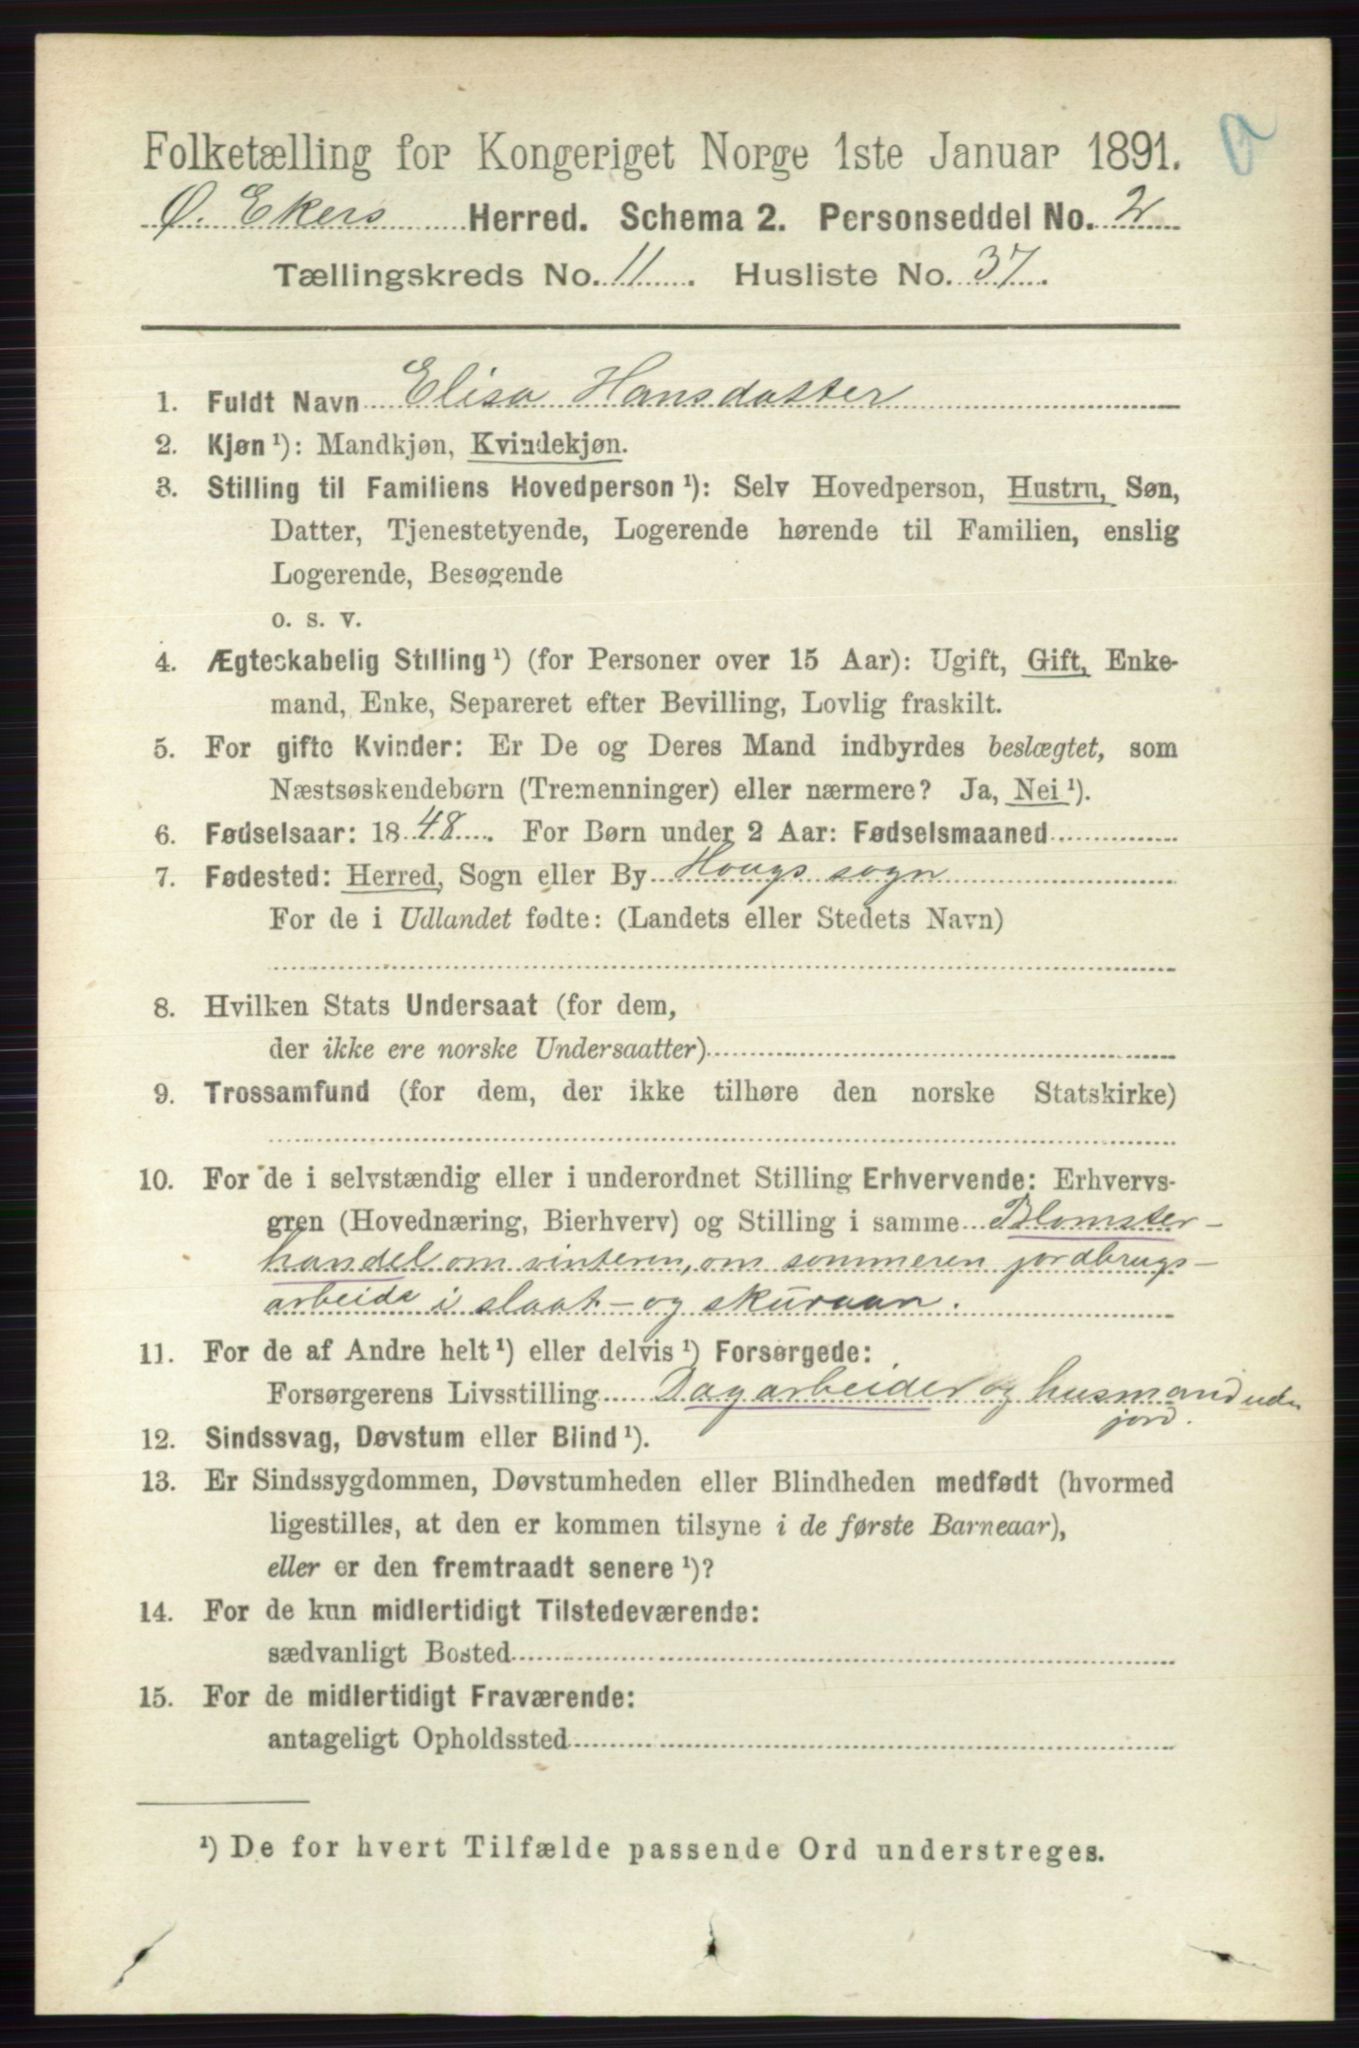 Folketælling for Kongeriget Norge 1ste Januar 1891.
Ø. Ekers Herred. Schema 2. Personseddel No. 2
Tællingskreds No. 11. Husliste No. 37.
1. Fuldt Navn Elisa Hansdatter
2. Kjøn ¹): Mandkjøn, Kvindekjøn.
3. Stilling til Familiens Hovedperson ¹): Selv Hovedperson, Hustru, Søn,
Datter, Tjenestetyende, Logerende hørende til Familien, enslig
Logerende, Besøgende
o. s. v.
4. Ægteskabelig Stilling ¹) (for Personer over 15 Aar): Ugift, Gift, Enke-
mand, Enke, Separeret efter Bevilling, Lovlig fraskilt.
5. For gifte Kvinder: Er De og Deres Mand indbyrdes beslægtet, som
Næstsøskendebørn (Tremenninger) eller nærmere? Ja, Nei ¹).
6. Fødselsaar: 1848. For Børn under 2 Aar: Fødselsmaaned
7. Fødested: Herred, Sogn eller By Hougs sogn
For de i Udlandet fødte: (Landets eller Stedets Navn)
8. Hvilken Stats Undersaat (for dem,
der ikke ere norske Undersaatter)
9. Trossamfund (for dem, der ikke tilhøre den norske Statskirke)
10. For de i selvstændig eller i underordnet Stilling Erhvervende: Erhvervs-
gren (Hovednæring, Bierhverv) og Stilling i samme Blomster-
handel om vinteren, om sommeren jordbrugs-
arbeide i slaat- og skuraan.
11. For de af Andre helt ¹) eller delvis ¹) Forsørgede:
Forsørgerens Livsstilling Dagarbeider og husmand uden
jord.
12. Sindssvag, Døvstum eller Blind ¹).
13. Er Sindssygdommen, Døvstumheden eller Blindheden medfødt (hvormed
ligestilles, at den er kommen tilsyne i de første Barneaar),
eller er den fremtraadt senere ¹)?
14. For de kun midlertidigt Tilstedeværende:
sædvanligt Bosted
15. For de midlertidigt Fraværende:
antageligt Opholdssted
¹) De for hvert Tilfælde passende Ord understreges.